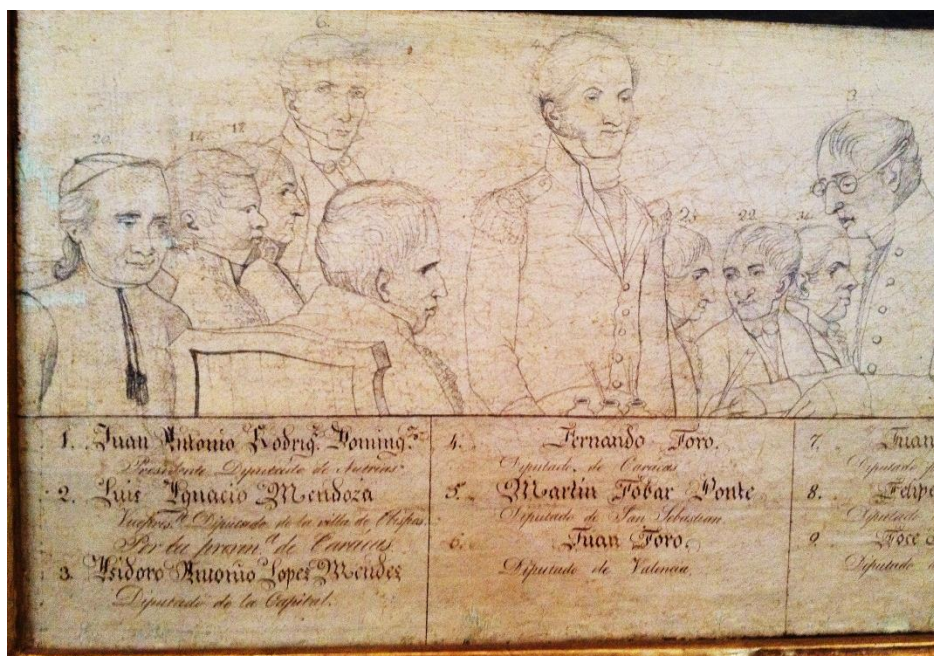 6.
4.
3.
20. 14. 12.
23. 22.
1. Juan Antonio Rodrig.^z Doming.^z
Presidente Diputado de Nutrias
2. Luis Ygnacio Mendoza
Vicepres.^te Diputado de la villa de Obispos.
Por la provin.^a de Caracas
3 Ysidoro Antonio Lopez Mendez
Diputado de la Capital.
4. Fernando Toro.
Diputado de Caracas
5. Martin Tobar Ponte
Diputado de San Sebastian
6. Juan Toro.
Diputado de Valencia.
7. Juan
Diputado
8. Felipe
Diputado
9.
Diputado